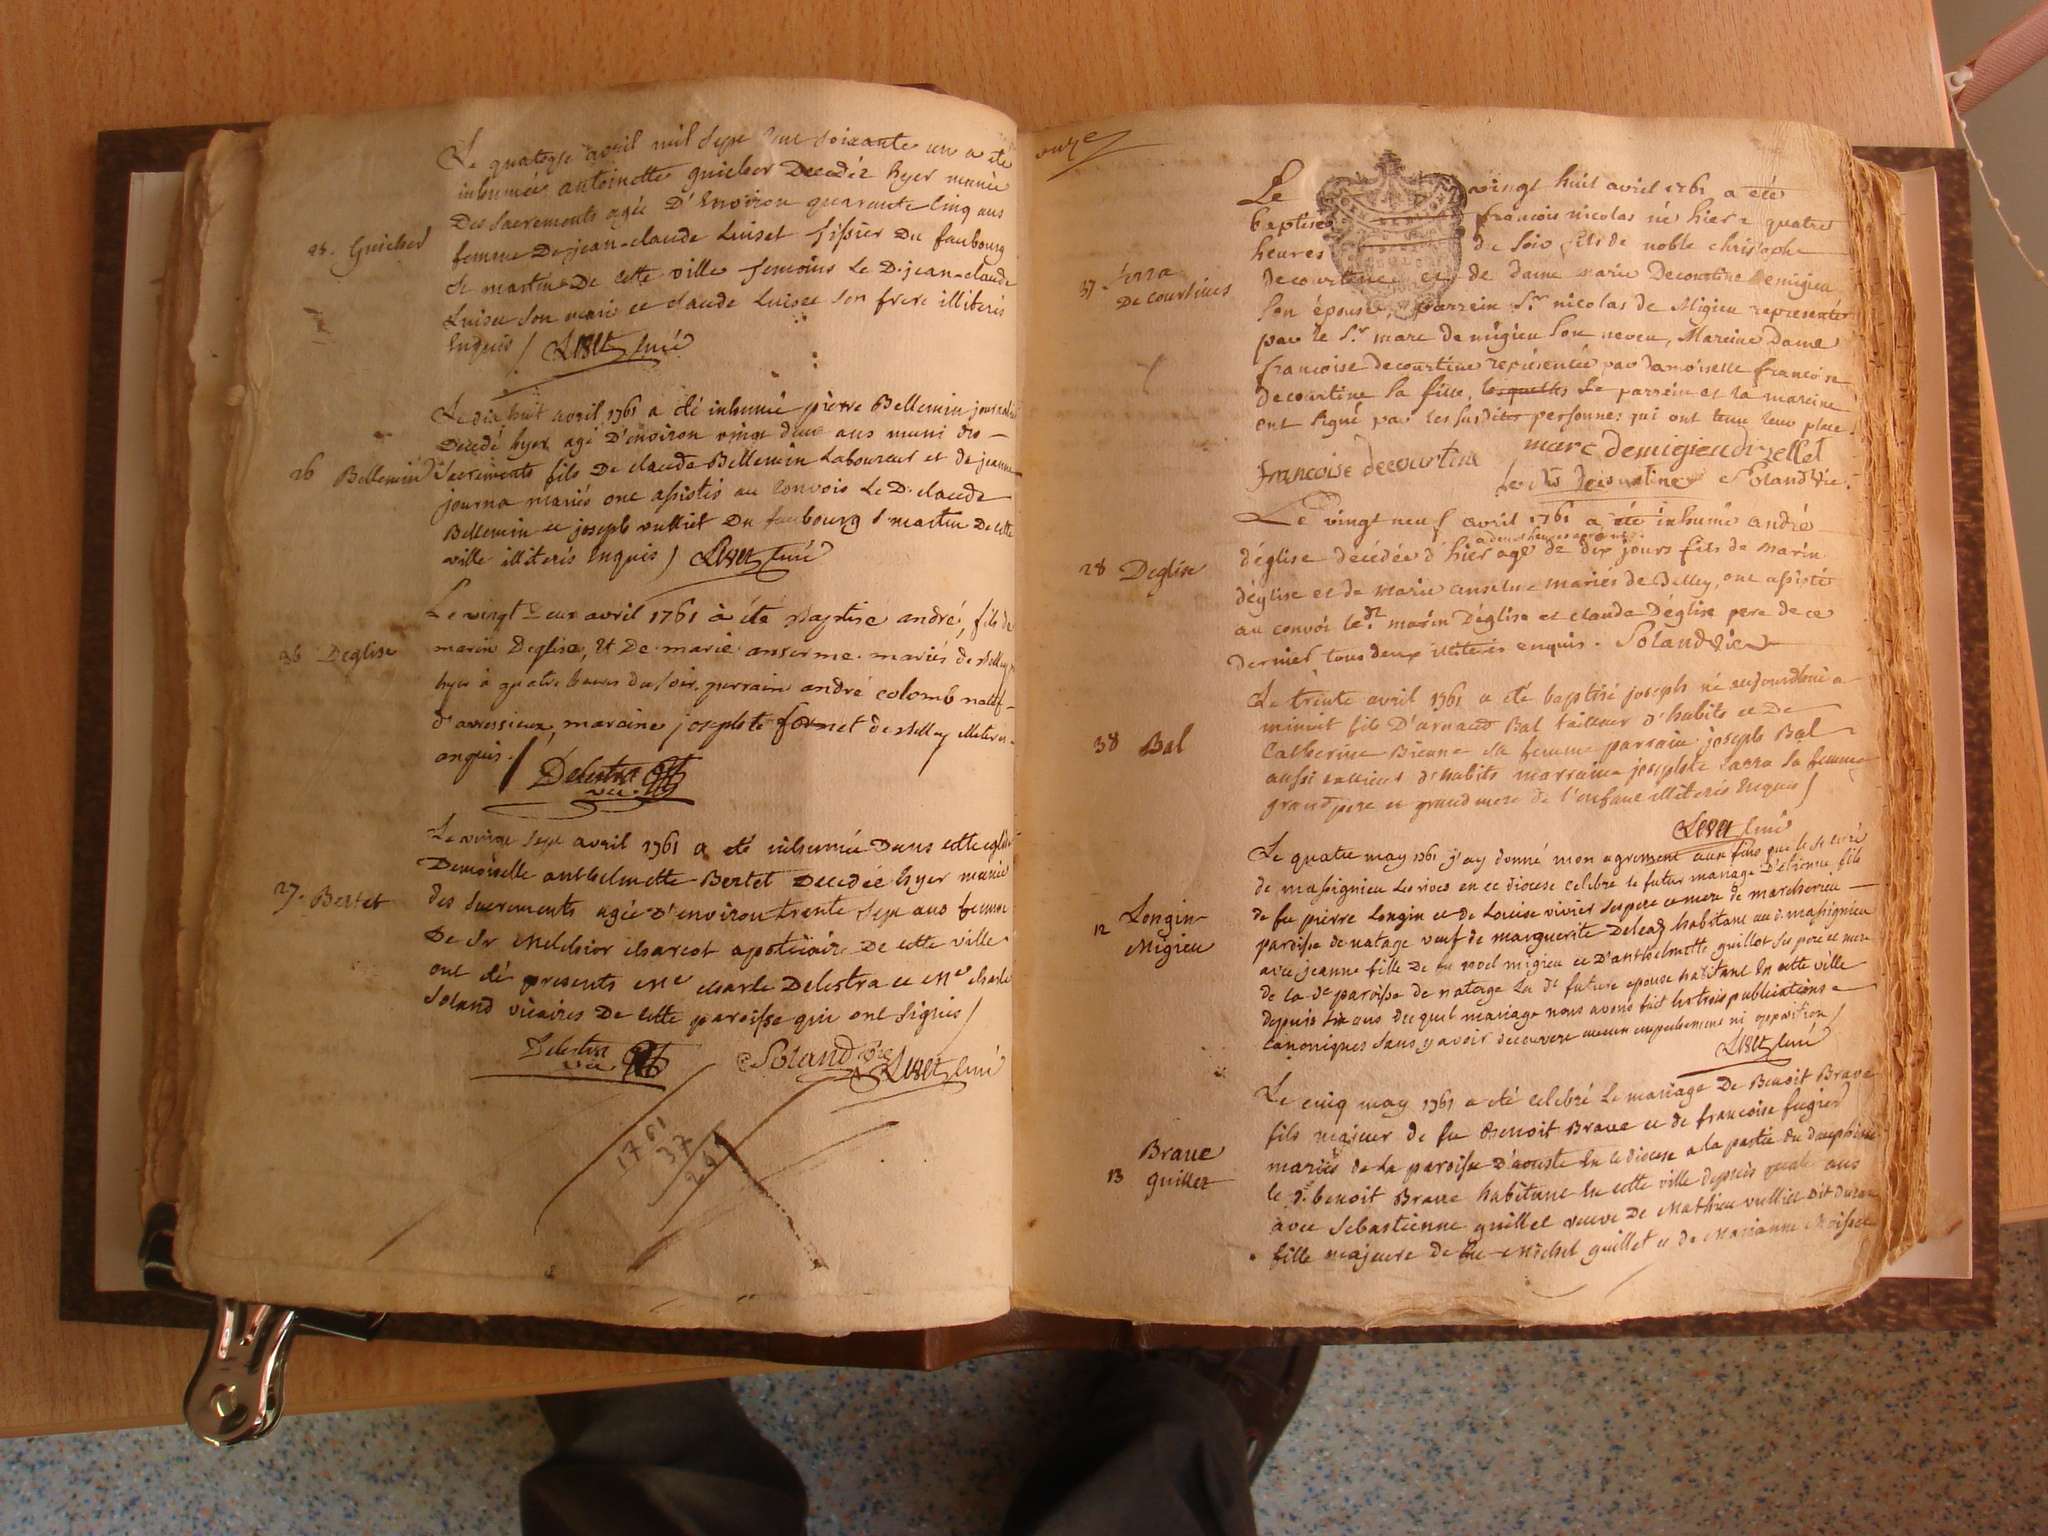 Le quatorze avril mil sept cent soixante un a eté
inhumée antoinette guicher Decedée hyer munie
Des sacrements agée D'environ quarante cinq ans
25. Guicher
femme De jean-claude Luiset Du faubourg
st martin De cette ville temoins Le D. jean-claude
Luiset son mari et claude Luiset son frere illiterés
enquis / Liset curé
Le dix huit avril 1761 a été inhumé pierre Bellemin
Decedé hyer agé D'environ vingt deux ans muni des
26 Bellemin
sacrements fils De claude Bellemin Laboureur et de jeanne
journa mariés ont assistés au convois Le D. claude
Bellemin et joseph vulliet Du faubourg st martin De cette
ville illiterés enquis / Liset curé
Le vingt deux avril 1761 à été Baptisé andré, fils de
36 Deglise
marin Deglise, et De marie anserme mariés de Belley
hyer à quatre heures du soir, parrain andré colomb natif
d'avressieux, maraine josephte fornet de Belley illeteres
enquis. / Delestra vic.
Le vingt sept avril 1761 a été inhumée Dans cette eglise
Demoiselle anthelmette Bertet Decedée hyer munie
27. Bertet
des sacrements agée D'environ trente sept ans femme
De Sr Melchior charcot apoticaire De cette ville
ont été presents Me charle Delestra et Me charle
Soland vicaires De cette paroisse qui ont signés /
Delestra vic. Soland vic Liset curé
1761
37
24
onze
Le vingt huit avril 1761 a été
baptisé françois nicolas né hier a quatre
heures de soir fils de noble christophe
37
De Courtines
decourtine et de dame marie Decourtine Demigieu
son épouse, parrein Sr. nicolas de Migieu representé
par le Sr. marc de migieu son neveu, Mareine dame
francoise decourtine representée par damoiselle francoise
decourtine sa fille, le parrein et la mareine
ont signé par les susdites personnes qui ont tenu leur place.
francoise decourtine marc demigieu
decourtine Soland Vic.
Le vingt neuf avril 1761 a été inhumé andré
28 Deglise
déglise decédée d'hier agé de dix jours fils de marin
déglise et de marie anselme mariés de Belley, ont assisté
au convoi le dt. marin Déglise et claude Déglise pere de ce
dernier tous deux illiterés enquis. Soland Vic
Le trente avril 1761 a été baptisé joseph né aujourdhui a
minuit fils D'arnaud Bal tailleur d'habits et De
38 Bal
Catherine sa femme parrain joseph Bal
aussi tailleur d'habits marraine josephte sa femme
grand pere et grand mere de l'enfant illiterés enquis /
Liset curé
Le quatre may 1761 j'ay donné mon agrement aux fins que le Sr curé
de massignieu Les rives en ce diocese celebre le futur mariage D'etienne fils
de fu pierre Longin et de Louise vivier ses pere et mere de
12 Longin
Migieu
paroisse de natage veuf de marguerite habitant au d. massignieu
avec jeanne fille De fu noel migieu et D'anthelmette guillot ses pere et mere
de la de paroisse de natage La de future epouse habitant en cette ville
depuis six ans du quel mariage nous avons fait les trois publications
canoniques sans y avoir decouvert aucun empechement ni opposition /
Liset curé
Le cinq may 1761 a été celebré Le mariage De Benoit Brave
fils majeur de fu Benoit Brave et de francoise fugier
13 Brave
guillet
mariés de La paroisse D'aouste en ce diocese a la partie du dauphiné
le d. benoit Brave habitant en cette ville depuis quatre ans
avec Sebastienne guillet veuve De Mathieu vulliet Dit
fille majeure de fu Michel guillet et de Marianne